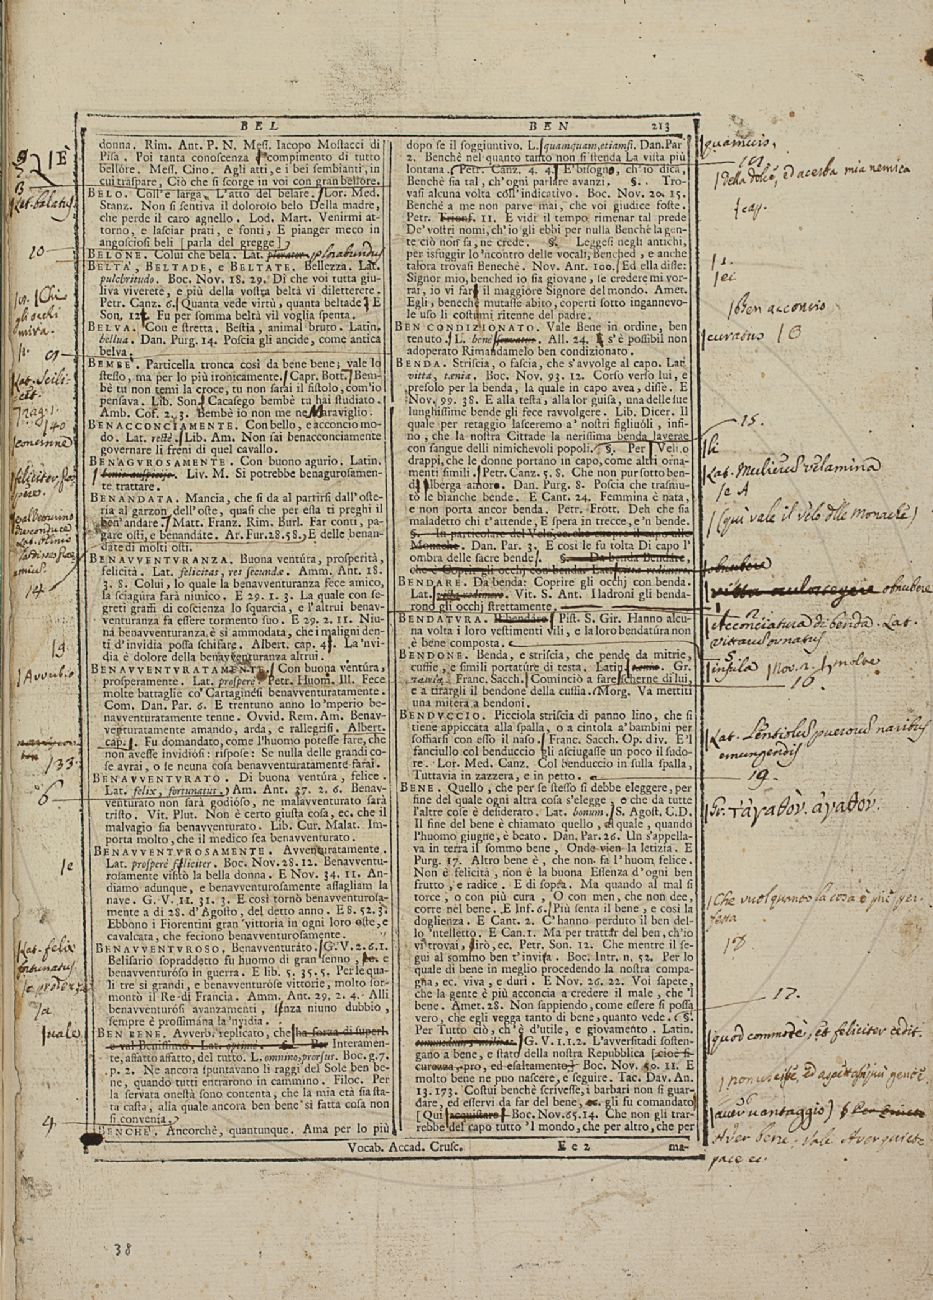 BEL
BEN 213
donna. Rim. Ant. P. N. Mess. Iacopo Mostacci di
Pisa. Poi tanta conoscenza compimento di tutto
bellore. Mess. Cino. Agli atti, e i bei sembianti, in
cui traspare, Ciò che si scorge in voi con gran bellore.
BELO. Coll'e larga. L'atto del belare. Lor. Med.
Stanz. Non si sentiva il doloroso belo Della madre,
che perde il caro agnello. Lod. Mart. Venirmi at-
torno, e lasciar prati, e fonti, E pianger meco in
angosciosi beli [parla del gregge]
BELONE. Colui che bela. Lat. plorabundus
BELTÀ, BELTADE, e BELTATE. Bellezza. Lat.
pulchritudo. Boc. Nov. 18. 29. Di che voi tutta giu-
liva viverete, e più della vostra beltà vi diletterete.
Petr. Canz. 6. Quanta vede virtù, quanta beltade. E
Son. 12. Fu per somma beltà vil voglia spenta.
BELVA. Con e stretta. Bestia, animal bruto. Latin.
bellua. Dan. Purg. 14. Poscia gli ancide, come antica
belva.
BEMBÈ. Particella tronca così da bene bene; vale lo
stesso, ma per lo più ironicamente. Capr. Bott. Bem-
bè tu non temi la croce, tu non sarai il fistolo, com'io
pensava. Lib. Son. Cacasego bembè tu hai studiato.
Amb. Cof. 2. 3. Bembè io non me ne Maraviglio.
BENACCONCIAMENTE. Con bello, e acconcio mo-
do. Lat. rectè. Lib. Am. Non sai benacconciamente
governare li freni di quel cavallo.
BENAGUROSAMENTE. Con buono agurio. Latin.
Liv. M. Si potrebbe benagurosamen-
te trattare.
BENANDATA. Mancia, che si da al partirsi dall'oste-
ria al garzon dell'oste, quasi che per essa ti preghi il
bon'andare. Matt. Franz. Rim. Burl. Far conti, pa-
gare osti, e benandate. Ar. Fur. 28. 58. E delle benan-
date di molti osti.
BENAVVENTURANZA. Buona ventura, prosperità,
felicità. Lat. felicitas, res secundæ. Amm. Ant. 18.
3. 8. Colui, lo quale la benavventuranza fece amico,
la sciagura farà nimico. E 29. 1. 3. La quale con se-
greti graffi di coscienza lo squarcia, e l'altrui benav-
venturanza fa essere tormento suo. E 29. 2. 11. Niu-
na benavventuranza è sì ammodata, che i maligni den-
ti d'invidia possa schifare. Albert. cap. 4. La 'nvi-
dia è dolore della benavventuranza altrui.
BENAVVENTURATAMENTE. Con buona ventura,
prosperamente. Lat. prosperè. Petr. Huom. Ill. Fece
molte battaglie co' Cartaginesi benavventuratamente.
Com. Dan. Par. 6. E trentuno anno lo 'mperio be-
navventuratamente tenne. Ovvid. Rem. Am. Benav-
venturatamente amando, arda, e rallegrisi. Albert.
cap. 1. Fu domandato, come l'huomo potesse fare, che
non avesse invidiosi: rispose: Se nulla delle grandi co-
se avrai, o se neuna cosa benavventuratamente farai.
BENAVVENTURATO. Di buona ventura, felice.
Lat. felix, fortunatus. Am. Ant. 37. 2. 6. Benav-
venturato non sarà godioso, ne malavventurato sarà
tristo. Vit. Plut. Non è certo giusta cosa, ec. che il
malvagio sia benavventurato. Lib. Cur. Malat. Im-
porta molto, che il medico sea benavventurato.
BENAVVENTUROSAMENTE. Avventuratamente.
Lat. prosperè feliciter. Boc. Nov. 28. 12. Benavventu-
rosamente visitò la bella donna. E Nov. 34. 11. An-
diamo adunque, e benavventurosamente assagliam la
nave. G. V. 11. 31. 3. E così tornò benavventurosa-
mente a dì 28. d'Agosto, del detto anno. E 8. 52. 3.
Ebbono i Fiorentini gran 'vittoria in ogni loro oste, e
cavalcata, che feciono benavventurosamente.
BENAVVENTUROSO. Benavventurato. G. V. 2. 6. 1.
Belisario sopraddetto fu huomo di gran senno, e
benavventuroso in guerra. E lib. 5. 35. 5. Per le qua-
li tre sì grandi, e benavventurose vittorie, molto for-
montò il Re di Francia. Amm. Ant. 29. 2. 4. Alli
benavventurosi avanzamenti, senza niuno dubbio,
sempre è prossimana la 'nvidia.
BEN BENE. Avverb. replicato, che ha forza di superl.
e val Benissimo. Lat. optimè. §. Per Interamen-
te, affatto affatto, del tutto. L. omnino, prorsus. Boc. g. 7.
p. 2. Ne ancora spuntavano li raggi del Sole ben be-
ne, quando tutti entrarono in cammino. Filoc. Per
la servata onestà sono contenta, che la mia età sia sta-
ta casta, alla quale ancora ben bene si fatta cosa non
si convenia.
BENCHÈ. Ancorchè, quantunque. Ama per lo più
dopo se il soggiuntivo. L. quamquam, etiamsi. Dan. Par
2. Benchè nel quanto tanto non si stenda La vista più
lontana. Petr. Canz. 4. 4. E' bisogno, ch'io dica,
Benchè sia tal, ch'ogni parlare avanzi. §. Tro-
vasi alcuna volta coll'indicativo. Boc. Nov. 20. 15.
Benchè a me non parve mai, che voi giudice foste.
Petr. Trionf. 11. E vidi il tempo rimenar tal prede
De' vostri nomi, ch'io gli ebbi per nulla Benchè la gen-
te ciò non sa, ne crede. §. Leggesi negli antichi,
per issuggir lo 'ncontro delle vocali, Benched, e anche
talora trovasi Benechè. Nov. Ant. 100. Ed ella disse:
Signor mio, benched io sia giovane, se credere mi vor-
rai, io vi farò il maggiore Signore del mondo. Amet.
Egli, benechè mutasse abito, coperti sotto ingannevo-
le uso li costumi ritenne del padre.
BEN CONDIZIONATO. Vale Bene in ordine, ben
tenuto. L. benè All. 24. s'è possibil non
adoperato Rimandamelo ben condizionato.
BENDA. Striscia, o fascia, che s'avvolge al capo. Lat.
vitta, tænia. Boc. Nov. 93. 12. Corso verso lui, e
presolo per la benda, la quale in capo avea, disse. E
Nov. 99. 38. E alla testa, alla lor guisa, una delle sue
lunghissime bende gli fece ravvolgere. Lib. Dicer. Il
quale per retaggio lasceremo a' nostri figliuoli, infi-
no, che la nostra Cittade la nerissima benda laverae
con sangue delli nimichevoli popoli. §. Per Veli, o
drappi, che le donne portano in capo, come altri orna-
menti simili. Petr. Canz. 5. 8. Che non pur sotto ben-
da Alberga amore. Dan. Purg. 8. Poscia che trasmu-
tò le bianche bende. E Cant. 24. Femmina è nata,
e non porta ancor benda. Petr. Frott. Deh che sia
maladetto chi t'attende, E spera in trecce, e 'n bende.
§. In particolare del Velo, ec. che cuopre il capo alle
Monache. Dan. Par. 3. E così le fu tolta Di capo l'
ombra delle sacre bende. §. Da benda Bendare,
che è Coprir gli occhj con benda. Lat.
BENDARE. Da benda: Coprire gli occhj con benda.
Lat. Vit. S. Ant. I ladroni gli benda-
rono gli occhj strettamente.
BENDATURA. Il bendare. Pist. S. Gir. Hanno alcu-
na volta i loro vestimenti vili, e la loro bendatura non
è bene composta.
BENDONE. Benda, e striscia, che pende da mitrie,
cuffie, e simili portature di testa. Latin. Gr.
ταινία. Franc. Sacch. Cominciò a fare scherne di lui,
e a tirargli il bendone della cuffia. Morg. Va mettiti
una mitera a bendoni.
BENDUCCIO. Picciola striscia di panno lino, che si
tiene appiccata alla spalla, o a cintola a' bambini per
soffiarsi con esso il naso. Franc. Sacch. Op. div. E 'l
fanciullo col benduccio gli asciugasse un poco il sudo-
re. Lor. Med. Canz. Col benduccio in sulla spalla,
Tuttavia in zazzera, e in petto.
BENE. Quello, che per se stesso si debbe eleggere, per
fine del quale ogni altra cosa s'elegge, o che da tutte
l'altre cose è desiderato. Lat. bonum. S. Agost. C. D.
Il fine del bene è chiamato quello, al quale, quando
l'huomo giugne, è beato. Dan. Par. 26. Un s'appella-
va in terra il sommo bene, Onde vien la letizia. E
Purg. 17. Altro bene è, che non fa l'huom felice.
Non è felicità, non è la buona Essenza d'ogni ben
frutto, e radice. E di sopra. Ma quando al mal si
torce, o con più cura, O con men, che non dee,
corre nel bene. E Inf. 6. Più senta il bene, e così la
doglienza. E Cant. 2. C'hanno perduto il ben del-
lo 'ntelletto. E Can. 1. Ma per trattar del ben, ch'io
vi trovai, dirò, ec. Petr. Son. 12. Che mentre il se-
gui al sommo ben t'invia. Boc. Intr. n. 52. Per lo
quale di bene in meglio procedendo la nostra compa-
gna, ec. viva, e duri. E Nov. 26. 22. Voi sapete,
che la gente è più acconcia a credere il male, che 'l
bene. Amet. 28. Non sappiendo, come essere si possa
vero, che egli vegga tanto di bene, quanto vede. §.
Per Tutto ciò, ch'è d'utile, e giovamento. Latin.
G. V. 1. 1. 2. L'avversitadi sosten-
gano a bene, e stato della nostra Repubblica [cioè si-
curezza, pro, ed esaltamento] Boc. Nov. 50. 11. E
molto bene puo nascere, e seguire. Tac. Dav. An.
13. 173. Costui benchè scrivesse, i barbari non si guar-
dare, ed esservi da far del bene, ec. gli fu comandato
[Qui acquistare] Boc. Nov. 65. 14. Che non gli trar-
rebbe del capo tutto 'l mondo, che per altro, che per
Vocab. Accad. Crusc.
E e 2
ma-
È
Lat. balatus
10
140
14
133
6
Lat. felix
fortunatus
4
quamvis,
ed acerba mia nemica
Ben acconcio
curatus
15.
Lat. Mulierum velamina
(qui vale il velo delle Monache)
obnubere
Acconciatura di benda. Lat.
infula
16
19.
Gr. τἀγαθόν. ἀγαθόν.
Che vuol quando la cosa è più per-
fetta
18.
17.
quod commodè, et feliciter cedit.
Aver bene. vale Aver quiete
pace ec.
38